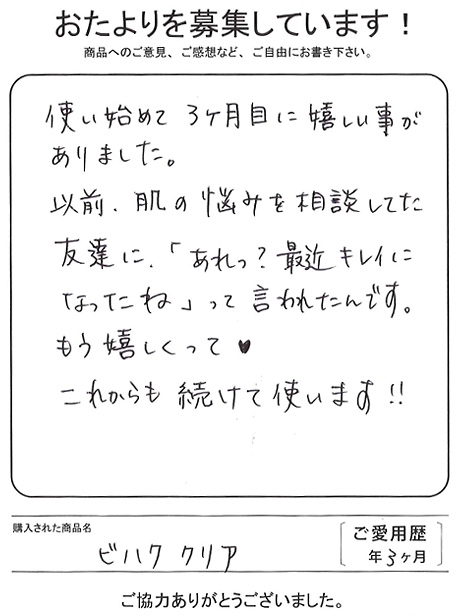 おたよりを募集しています！
商品へのご意見、ご感想など、ご自由にお書き下さい。
使い始めて 3ヶ月目に嬉しい事が
ありました。
以前、肌の悩みを相談してた
友達に、「あれっ？最近キレイに
なったね」って言われたんです。
もう嬉しくって♥
これからも続けて使います!!
購入された商品名
ビハククリア
ご愛用歴
年3ヶ月
ご協力ありがとうございました。